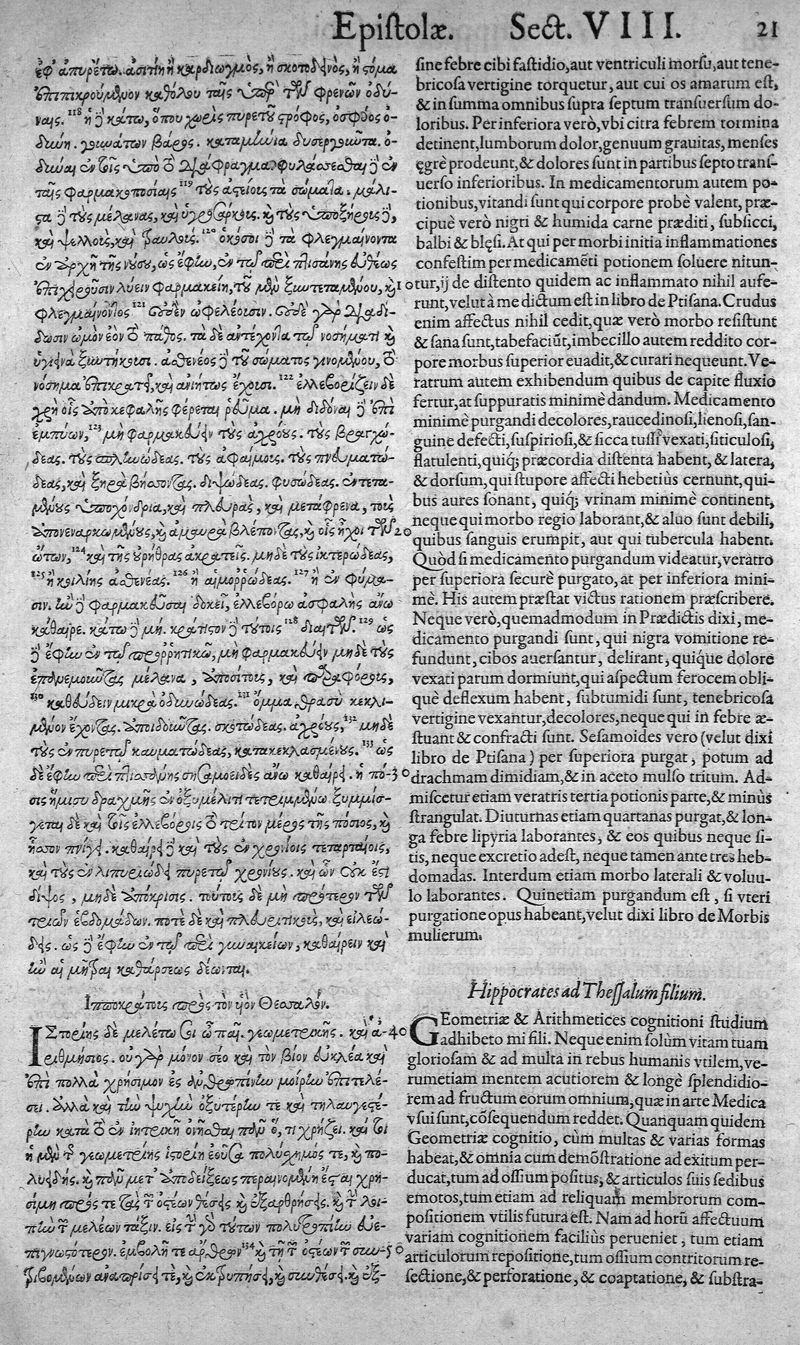 Epistolæ. Sect. VIII. 21
ἐφ' ἀπυρέτῳ. ἀσιτίη ἢ καρδιωγμὸς, ἢ σκοτόδινος, ἢ στόμα
ἐπιπικρούμενον καθόλου ταῖς ὑπὲρ τῶν φρενῶν ὀδύ-
ναις. 118 ἢ κάτω, ὅπου χωρὶς πυρετοῦ στρόφος, ὀσφύος ὀ-
δύνη. γουνάτων βάρος. καταμήνια δυσεργέοντα. ὀ-
δύναι ἐν τοῖς ὑπὸ τὸ διάφραγμα φυλάσσεσθαι δὲ ἐν
τῇσι φαρμακοποσίαις 119 τοὺς ἀστείους τὰ σώματα. μάλι-
στα δὲ τοὺς μέλανας, καὶ ὑγροσάρκους. καὶ τοὺς ὑποξήρους
καὶ ψελλοὺς, καὶ τραυλούς. 120 ὁκόσοι δὲ τὰ φλεγμαίνοντα
ἐν ἀρχῇ τῆς νούσου, ὡς ἔφην, ἐν τῷ περὶ πτισάνης εὐθέως
ἐπιχειρεῦσιν λύειν φαρμακείῃ, τοῦ μὲν ξυντεταμένου, καὶ
φλεγμαίνοντος 121 οὐδὲν ὠφελέουσιν. οὐδὲ γὰρ διαδι-
δωσιν ὠμὸν ἐὸν τὸ πάθος. τὰ δὲ ἀντέχοντα τῷ νοσήματι καὶ
ὑγιεινὰ ξυντήκουσι. ἀσθενέος δὲ τοῦ σώματος γινομένου, τὸ
νόσημα ἐπικρατεῖ, καὶ ἀνιήτως ἔχουσι. 122 ἐλλεβορίζειν δὲ
χρὴ οἷς ἀπὸ κεφαλῆς φέρεται ῥεῦμα. μὴ διδόναι δὲ ἐπὶ
ἐμπύων, 123 μὴ φαρμακεύειν τοὺς ἀχρόους. τοὺς βραγχώ-
δεας. τοὺς σπληνώδεας. τοὺς ἀφαίμους. τοὺς πνευματώ-
δεας, καὶ ξηρὰ βήσσοντας. διψώδεας. φυσώδεας. ἐντετα-
μένους ὑποχόνδρια, καὶ πλευρὰς, καὶ μετάφρενα, τοὺς
ἀπονεναρκωμένους, καὶ ἀμαυρὰ βλέποντας, καὶ οἷς ἦχοι τῶν
ὤτων, 124 καὶ τῆς οὐρήθρας ἀκρατεῖς. μηδὲ τοὺς ἰκτερώδεας,
125 ἢ κοιλίης ἀσθενέας. 126 ἢ αἱμορρώδεας. 127 ἢ ἐν φύμα-
σιν. ἢν δὲ φαρμακεῦσαι δοκέῃ, ἐλλεβόρῳ ἀσφαλῆς ἄνω
κάθαιρε. κάτω δὲ μή. κράτιστον δὲ τούτοις 128 διαιτᾶν. 129 ὡς
δὲ ἔφην ἐν τῷ προῤῥητικῷ, μὴ φαρμακεύειν μηδὲ τοὺς
ἐπανεμοῦντας μέλανα, ἀποσίτους, καὶ παραφόρους,
130 καθεύδειν μικρὰ ὀδυνώδεας. 131 ὄμμα θρασὺ κεκλι-
μένον ἔχοντας. ὑποιδέοντας. σκοτώδεας. ἀχρόους, 132 μηδὲ
τοὺς ἐν πυρετῷ καυματώδεας, κατακεκλασμένους. 133 ὡς
δὲ ἔφην περὶ πτισάνης σησαμοειδὲς ἄνω καθαίρει. ἡ πό- 30
σις ἥμισυ δραχμῆς ἐν ὀξυμέλιτι τετριμμένῳ. ξυμμίσ-
γεται δὲ καὶ τοῖς ἐλλεβόροις τὸ τρίτον μέρος τῆς πόσιος, καὶ
ἧσσον πνίγει. καθαίρει δὲ καὶ τοὺς ἐν χρονίοις τεταρταίοις,
καὶ τοὺς ἐν λιπυριώδει πυρετῷ χρονίους. καὶ ὧν οὐκ ἔστι
δίψος, μηδὲ ἀπόκρισις. τούτοις δὲ μὴ πρότερον τῶν
τριῶν ἑβδομάδων. ποτὲ δὲ καὶ πλευριτικοῖς, καὶ εἰλεώ-
δης. ὡς δὲ ἔφην ἐν τῷ περὶ γυναικείων, καθαίρειν καὶ
ἢν αἱ μῆτραι καθάρσεως δέωνται.
Ἱπποκράτους πρὸς τὸν υἱὸν Θεσσαλόν.
ΙΣτορίης δὲ μελέτω σοι ὦ παῖ. γεωμετρικῆς. καὶ ἀ- 40
ριθμήσιος. οὐ γὰρ μόνον σεο καὶ τὸν βίον εὐκλέα καὶ
ἐπὶ πολλὰ χρήσιμον ἐς ἀνθρωπίνην μοίρην ἐπιτελέ-
σει. ἀλλὰ καὶ τὴν ψυχὴν ὀξυτέρην τε καὶ τηλαυγεστέ-
ρην κατὰ τὸ ἐν ἰητρικῇ ὀνήσασθαι πᾶν ὅ, τι χρῄζει. καὶ τοι
ἡ μὲν τῆς γεωμετρίης ἱστορίη ἐοῦσα πολύσχημός τε, καὶ πο-
λυειδής. καὶ πᾶν μετ' ἀποδείξεως περαινομένη ἔσται χρη-
σίμη πρός τε τὰς τῶν ὀστέων θέσιας, καὶ ἐξαρθρήσιας, καὶ τῶν λοι-
πῶν τῶν μελέων τάξιν.
sine febre cibi fastidio, aut ventriculi morsu, aut tene-
bricosa vertigine torquetur, aut cui os amarum est,
& in summa omnibus supra septum transuersum do-
loribus. Per inferiora verò, vbi citra febrem tormina
detinent, lumborum dolor, genuum grauitas, menses
ęgrè prodeunt, & dolores sunt in partibus septo trans-
uerso inferioribus. In medicamentorum autem po-
tionibus, vitandi sunt qui corpore probè valent, præ-
cipuè verò nigri & humida carne præditi, subsicci,
balbi & blęsi. At qui per morbi initia inflammationes
confestim per medicamēti potionem soluere nitun-
10 tur, ij de distento quidem ac inflammato nihil aufe-
runt, velut à me dictum est in libro de Ptisana. Crudus
enim affectus nihil cedit, quæ verò morbo resistunt
& sana sunt, tabefaciūt, imbecillo autem reddito cor-
pore morbus superior euadit, & curati nequeunt. Ve-
ratrum autem exhibendum quibus de capite fluxio
fertur, at suppuratis minimè dandum. Medicamento
minimè purgandi decolores, raucedinosi, lienosi, san-
guine defecti, suspiriosi, & sicca tussi vexati, siticulosi,
flatulenti, quiq; præcordia distenta habent, & latera,
& dorsum, qui stupore affecti hebetius cernunt, qui-
bus aures sonant, quiq; vrinam minimè continent,
neque qui morbo regio laborant, & aluo sunt debili,
20 quibus sanguis erumpit, aut qui tubercula habent.
Quòd si medicamento purgandum videatur, veratro
per superiora securè purgato, at per inferiora mini-
mè. His autem præstat victus rationem præscribere.
Neque verò, quemadmodum in Prædictis dixi, me-
dicamento purgandi sunt, qui nigra vomitione re-
fundunt, cibos auersantur, delirant, quique dolore
vexati parum dormiunt, qui aspectum ferocem obli-
què deflexum habent, subtumidi sunt, tenebricosa
vertigine vexantur, decolores, neque qui in febre æ-
stuant & confracti sunt. Sesamoides vero (velut dixi
libro de Ptisana) per superiora purgat, potum ad
drachmam dimidiam, & in aceto mulso tritum. Ad-
miscetur etiam veratris tertia potionis parte, & minùs
strangulat. Diuturnas etiam quartanas purgat, & lon-
ga febre lipyria laborantes, & eos quibus neque si-
tis, neque excretio adest, neque tamen ante tres heb-
domadas. Interdum etiam morbo laterali & voluu-
lo laborantes. Quinetiam purgandum est, si vteri
purgatione opus habeant, velut dixi libro de Morbis
mulierum.
Hippocrates ad Thessalum filium.
GEometriæ & Arithmetices cognitioni studium
adhibeto mi fili. Neque enim solùm vitam tuam
gloriosam & ad multa in rebus humanis vtilem, ve-
rumetiam mentem acutiorem & longè splendidio-
rem ad fructum eorum omnium, quæ in arte Medica
vsui sunt, cōsequendum reddet. Quanquam quidem
Geometriæ cognitio, cùm multas & varias formas
habeat, & omnia cum demōstratione ad exitum per-
ducat, tum ad ossium positus, & articulos suis sedibus
emotos, tum etiam ad reliquam membrorum com-
positionem vtilis futura est. Nam ad horū affectuum
variam cognitionem facilius perueniet, tum etiam
50 articulorum repositione, tum ossium contritorum re-
sectione, & perforatione, & coaptatione, & substra-